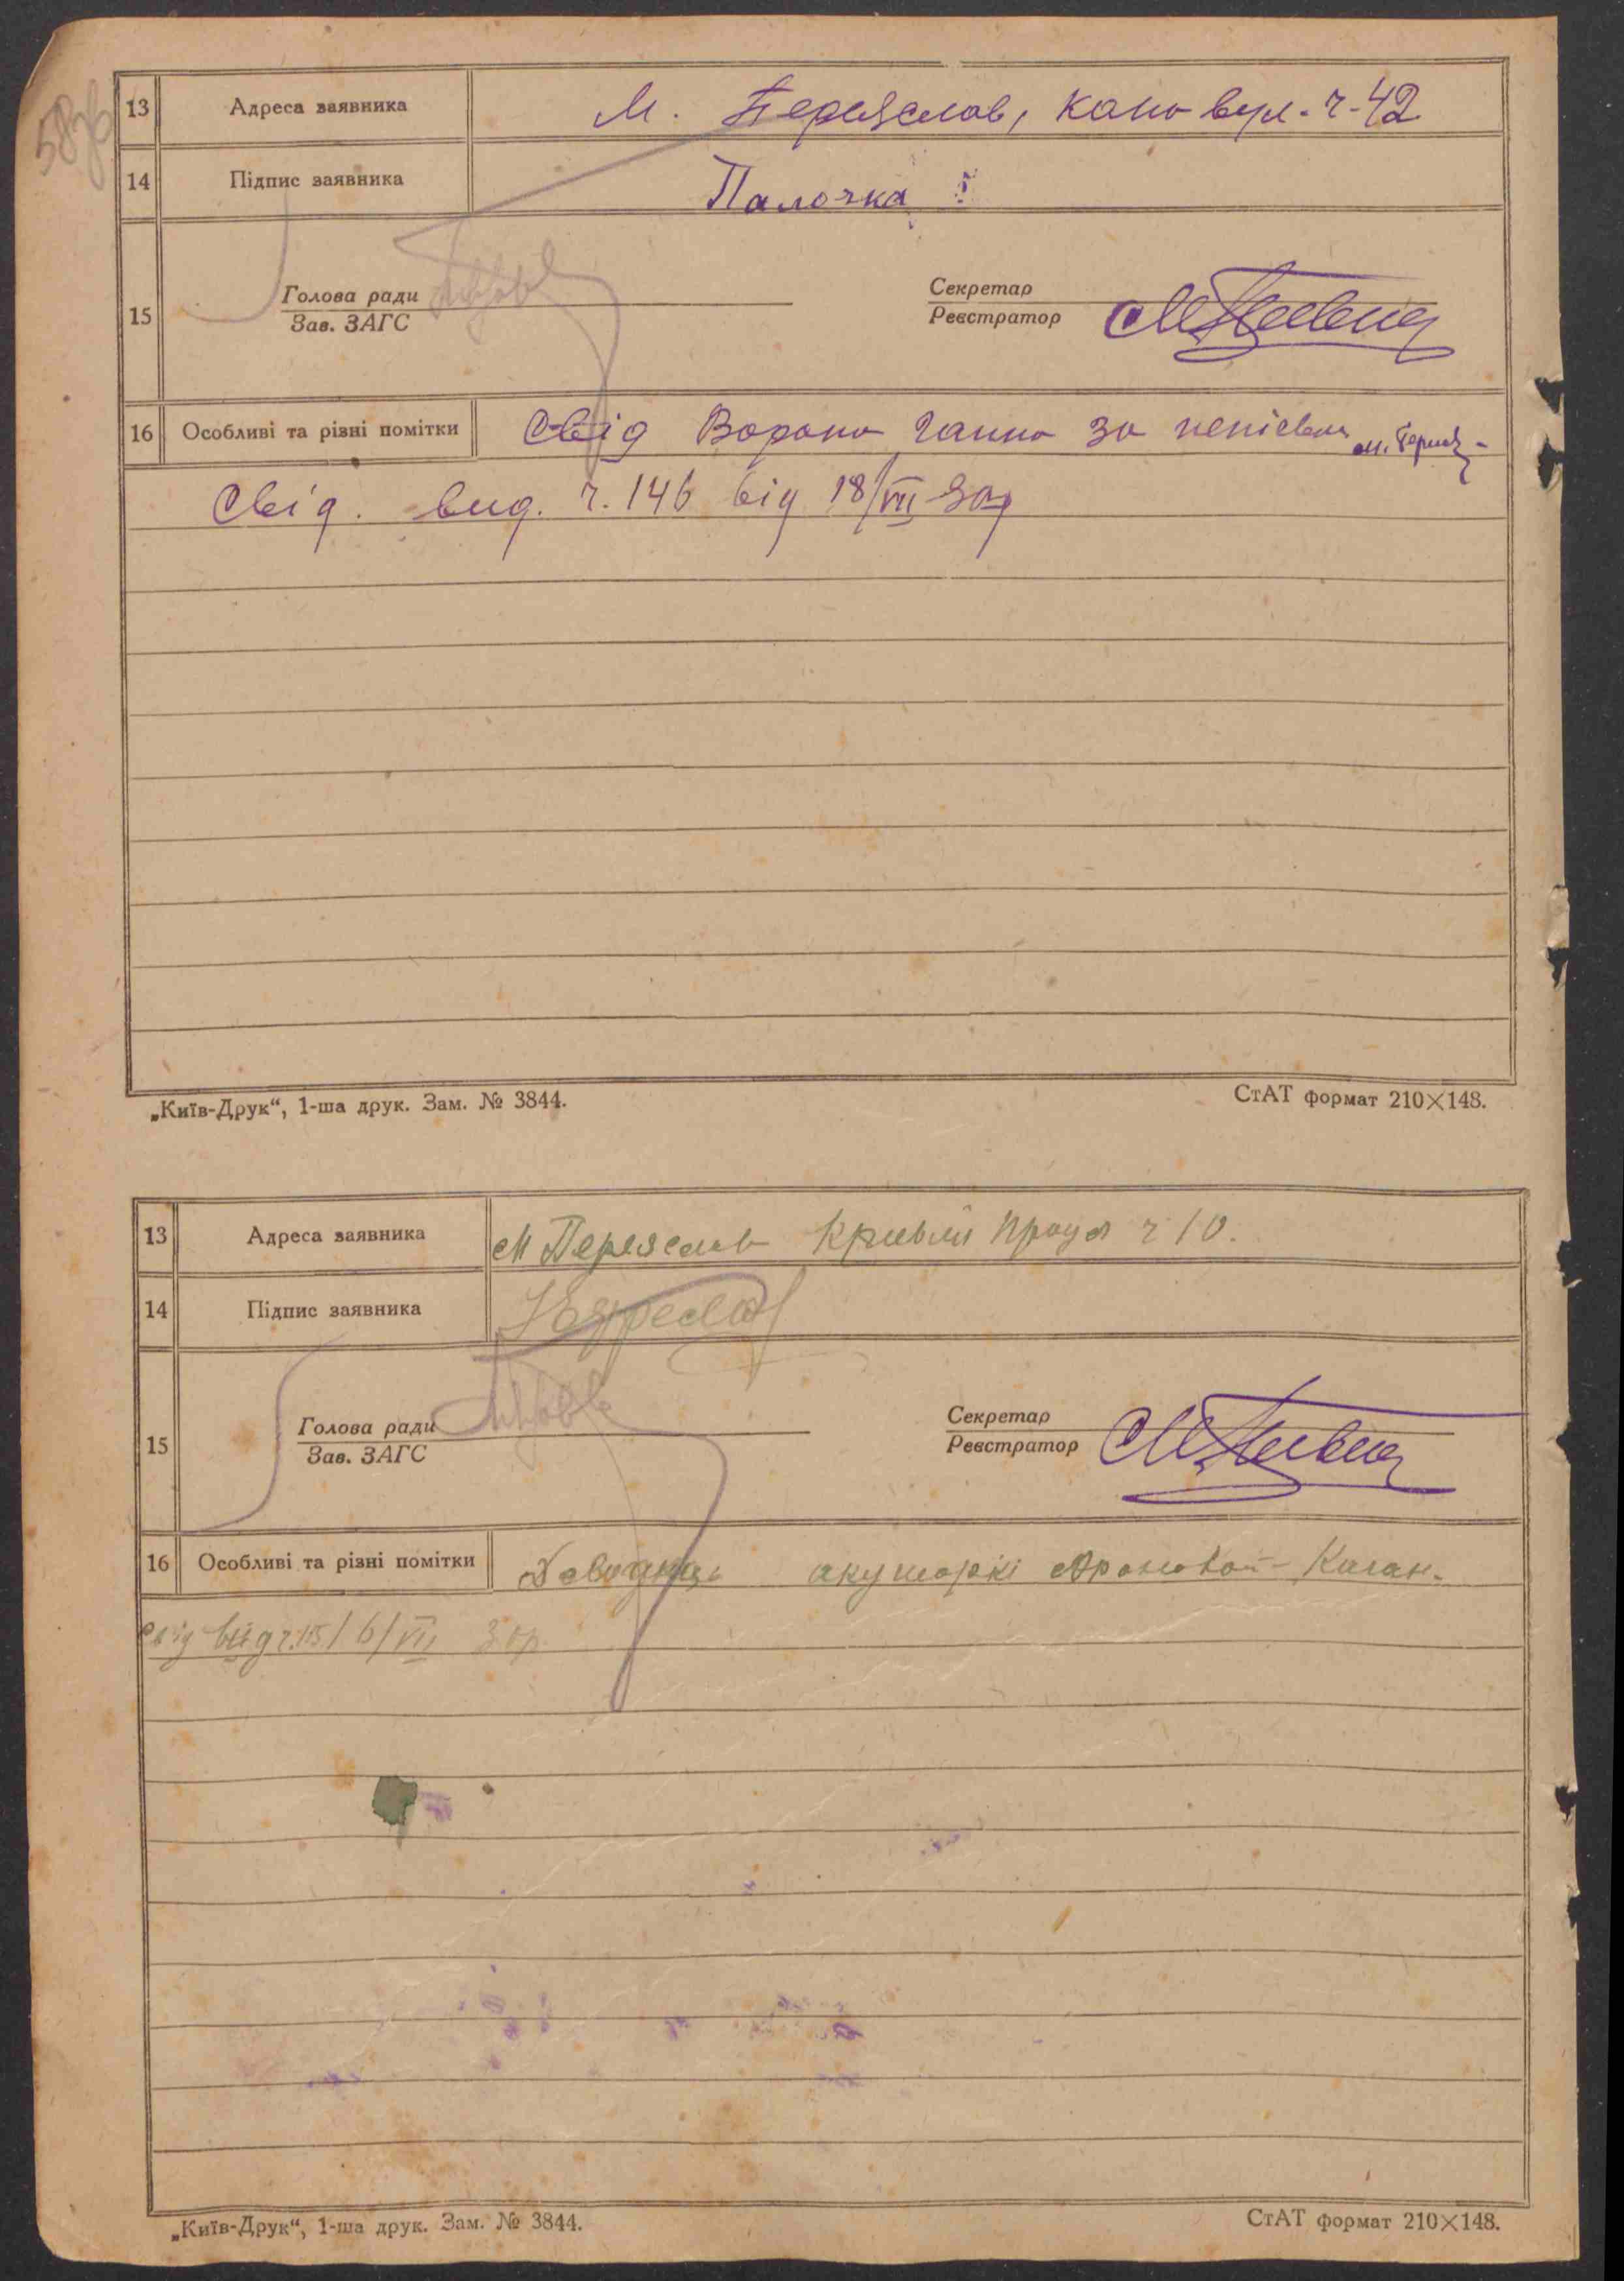 13 Адреса заявника М. Переяслав, Кано вул. ч-42
14 Підпис заявника Палочка
15 Голова ради Зав. ЗАГС Секретар Реєстратор
16 Особливі та різні помітки Свід Ворона Ганна за
Свід. вид. ч. 146 від 18/VII-30р
„Київ-Друк“, 1-ша друк. Зам. № 3844. СтАТ формат 210×148.
13 Адреса заявника М Переяслав Кривий ч 10.
14 Підпис заявника
15 Голова ради Зав. ЗАГС Секретар Реєстратор
16 Особливі та різні помітки акушоркі Ароновой-Каган.
Свід вид ч. 30р
„Київ-Друк“, 1-ша друк. Зам. № 3844. СтАТ формат 210×148.